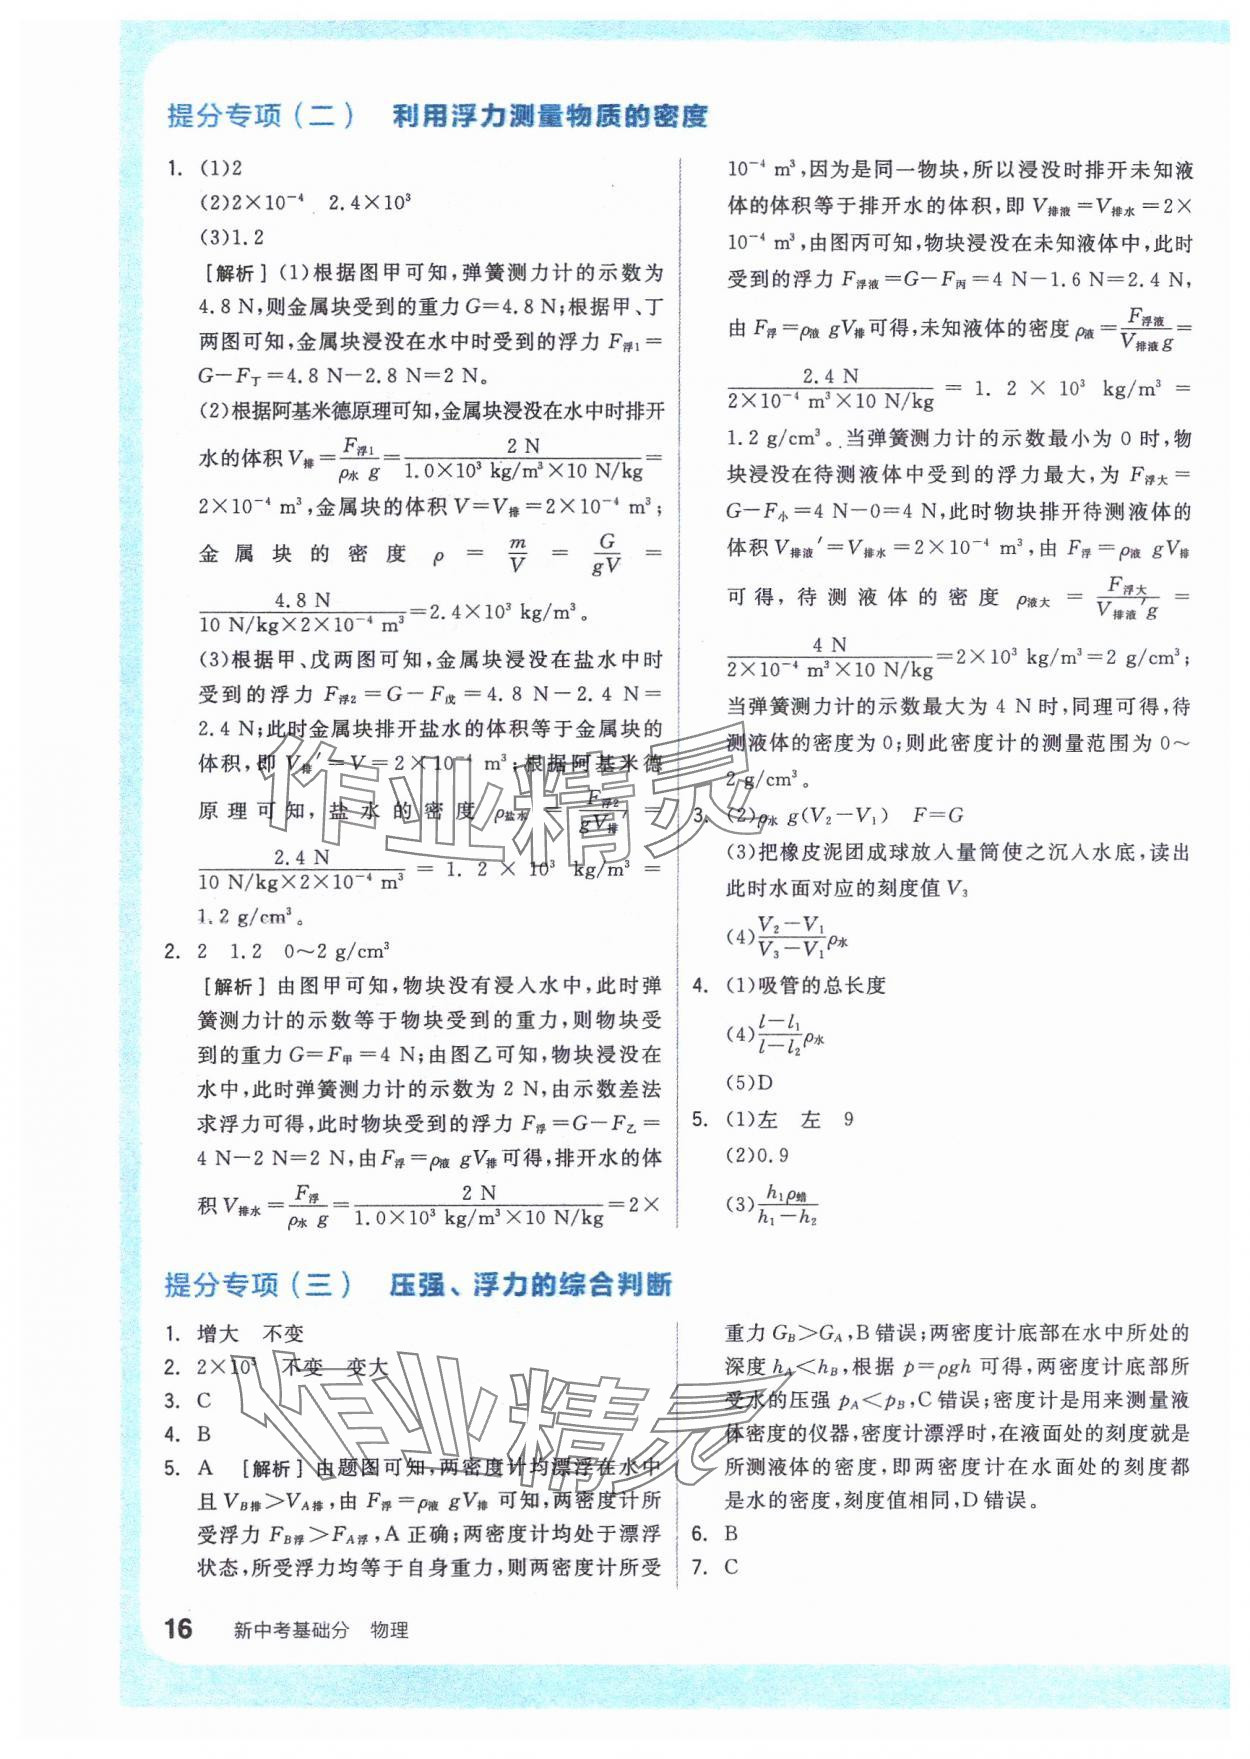 提分专项（二） 利用浮力测量物质的密度
1. (1)2
(2)2×10⁻⁴ 2.4×10³
(3)1.2
[解析] (1)根据图甲可知,弹簧测力计的示数为
4.8 N,则金属块受到的重力 G=4.8 N;根据甲、丁
两图可知,金属块浸没在水中时受到的浮力 F浮1=
G−F丁=4.8 N−2.8 N=2 N。
(2)根据阿基米德原理可知,金属块浸没在水中时排开
水的体积 V排=F浮1/(ρ水 g)=2 N/(1.0×10³ kg/m³×10 N/kg)=
2×10⁻⁴ m³,金属块的体积 V=V排=2×10⁻⁴ m³;
金属块的密度 ρ = m/V = G/(gV) =
4.8 N/(10 N/kg×2×10⁻⁴ m³)=2.4×10³ kg/m³。
(3)根据甲、戊两图可知,金属块浸没在盐水中时
受到的浮力 F浮2=G−F戊=4.8 N−2.4 N=
2.4 N;此时金属块排开盐水的体积等于金属块的
体积,即 V排′=V=2×10⁻⁴ m³;根据阿基米德
原理可知,盐水的密度 ρ盐水 = F浮2/(gV排′) =
2.4 N/(10 N/kg×2×10⁻⁴ m³) = 1.2 × 10³ kg/m³ =
1.2 g/cm³。
2. 2 1.2 0～2 g/cm³
[解析] 由图甲可知,物块没有浸入水中,此时弹
簧测力计的示数等于物块受到的重力,则物块受
到的重力 G=F甲=4 N;由图乙可知,物块浸没在
水中,此时弹簧测力计的示数为 2 N,由示数差法
求浮力可得,此时物块受到的浮力 F浮=G−F乙=
4 N−2 N=2 N,由F浮=ρ液 gV排可得,排开水的体
积 V排水=F浮/(ρ水 g)=2 N/(1.0×10³ kg/m³×10 N/kg)=2×
10⁻⁴ m³,因为是同一物块,所以浸没时排开未知液
体的体积等于排开水的体积,即 V排液=V排水=2×
10⁻⁴ m³,由图丙可知,物块浸没在未知液体中,此时
受到的浮力 F浮液=G−F丙=4 N−1.6 N=2.4 N,
由 F浮=ρ液 gV排可得,未知液体的密度 ρ液=F浮液/(V排液 g)=
2.4 N/(2×10⁻⁴ m³×10 N/kg) = 1.2 × 10³ kg/m³ =
1.2 g/cm³。当弹簧测力计的示数最小为 0 时,物
块浸没在待测液体中受到的浮力最大,为 F浮大=
G−F小=4 N−0=4 N,此时物块排开待测液体的
体积V排液′=V排水=2×10⁻⁴ m³,由 F浮=ρ液 gV排
可得,待测液体的密度 ρ液大 = F浮大/(V排液′g) =
4 N/(2×10⁻⁴ m³×10 N/kg)=2×10³ kg/m³=2 g/cm³;
当弹簧测力计的示数最大为 4 N时,同理可得,待
测液体的密度为 0;则此密度计的测量范围为 0～
2 g/cm³。
3. (2)ρ水 g(V₂−V₁) F=G
(3)把橡皮泥团成球放入量筒使之沉入水底,读出
此时水面对应的刻度值 V₃
(4)(V₂−V₁)/(V₃−V₁)ρ水
4. (1)吸管的总长度
(4)(l−l₁)/(l−l₂)ρ水
(5)D
5. (1)左 左 9
(2)0.9
(3)h₁ρ蜡/(h₁−h₂)
提分专项（三） 压强、浮力的综合判断
1. 增大 不变
2. 2×10³ 不变 变大
3. C
4. B
5. A [解析] 由题图可知,两密度计均漂浮在水中
且 VB排>VA排,由 F浮=ρ液 gV排 可知,两密度计所
受浮力 FB浮>FA浮,A 正确;两密度计均处于漂浮
状态,所受浮力均等于自身重力,则两密度计所受
重力 GB>GA,B 错误;两密度计底部在水中所处的
深度 hA<hB,根据 p=ρgh 可得,两密度计底部所
受水的压强 pA<pB,C 错误;密度计是用来测量液
体密度的仪器,密度计漂浮时,在液面处的刻度就是
所测液体的密度,即两密度计在水面处的刻度都
是水的密度,刻度值相同,D 错误。
6. B
7. C
作业精灵
作业精灵
16 新中考基础分 物理